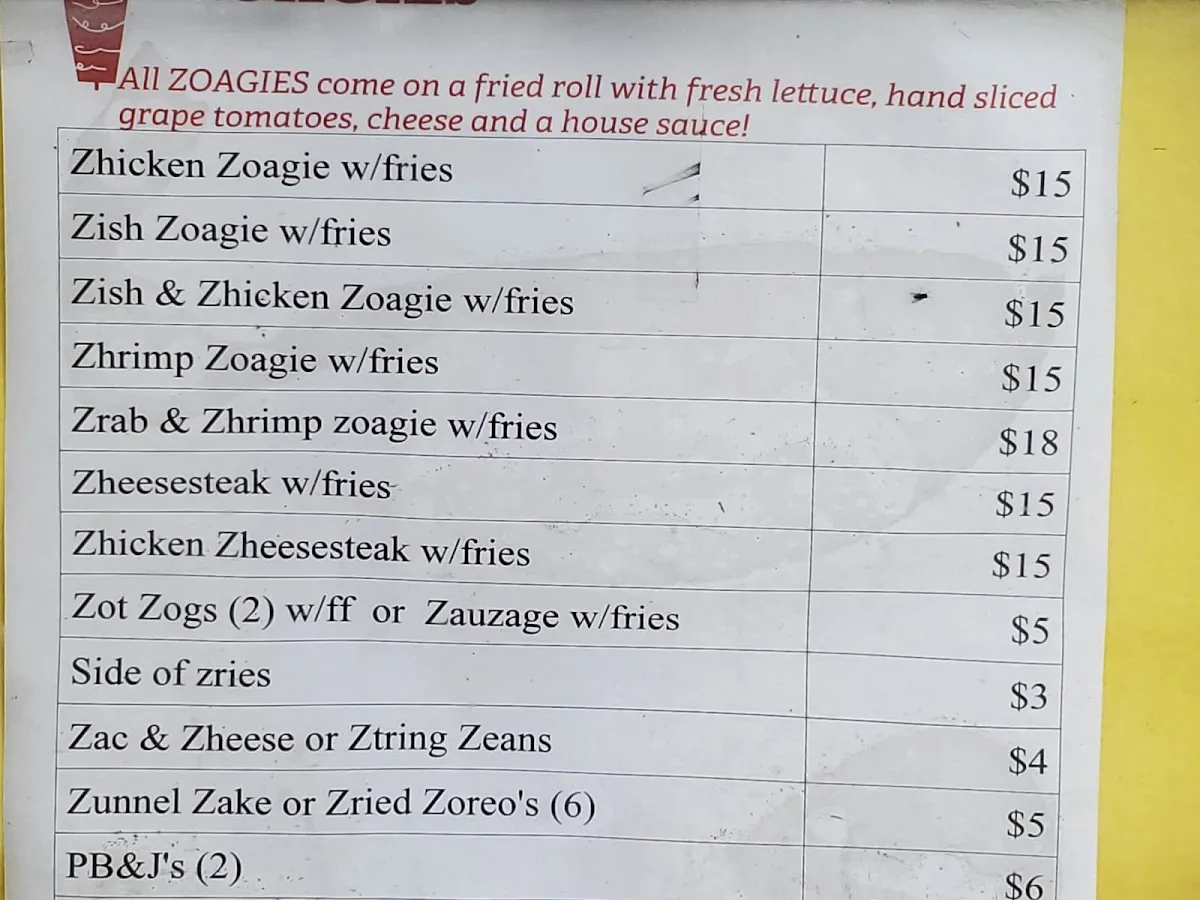 All ZOAGIES come on a fried roll with fresh lettuce, hand sliced
grape tomatoes, cheese and a house sauce!
Zhicken Zoagie w/fries $15
Zish Zoagie w/fries $15
Zish & Zhicken Zoagie w/fries $15
Zhrimp Zoagie w/fries $15
Zrab & Zhrimp zoagie w/fries $18
Zheesesteak w/fries $15
Zhicken Zheesesteak w/fries $15
Zot Zogs (2) w/ff or Zauzage w/fries $5
Side of zries $3
Zac & Zheese or Ztring Zeans $4
Zunnel Zake or Zried Zoreo's (6) $5
PB&J's (2) $6